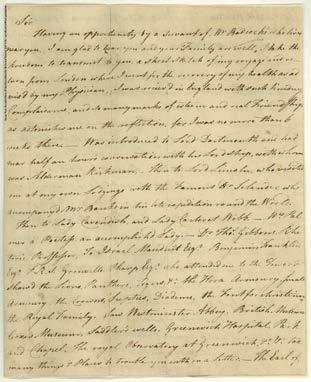 Sir
Having an opportunity by a servant of Mr Badcocke's who lives
near you, I am glad to hear you and your Family are well, I take the
freedom to transmit to you a short sketch of my voyage and re-
turn from London where I went for the recovery of my health as ad-
vis'd by my Physician, I was receiv'd in England with such kindness
Complaisance, and so many marks of esteem and real Friendship
as astonishes me on the reflection, for I was no more than 6
weeks there. — Was introduced to Lord Dartmouth and had
near half an hour's conversation with his Lordship, with whom
was Alderman Kirkman, — Then to Lord Lincoln, who visited
me at my own Lodgings with the Famous Dr Solander, who
accompany'd Mr Banks in his late expedition round the World.
Then to Lady Cavendish, and Lady Carteret Webb — Mrs Pal-
mer a Poetess an accomplished Lady. — Dr Thos Gibbons, Rhe-
toric Proffesor, To Israel Mauduit Esqr. Benjamin Franklin
Esqr F.R.S. Grenville Sharp Esqr. who attended me to the Tower &
show'd the Lions, Panthers, Tigers, &c. the Horse Armoury, small
Armoury, the Crowns, Sceptres, Diadems, the Font for christening
the Royal Family. Saw Westminster Abbey, British Museum
Coxe's Museum, Saddler's wells, Greenwich Hospital, Park
and Chapel, The royal Observatory at Greenwich, &c. &c. too
many things & Places to trouble you with in a Letter. — The Earl of